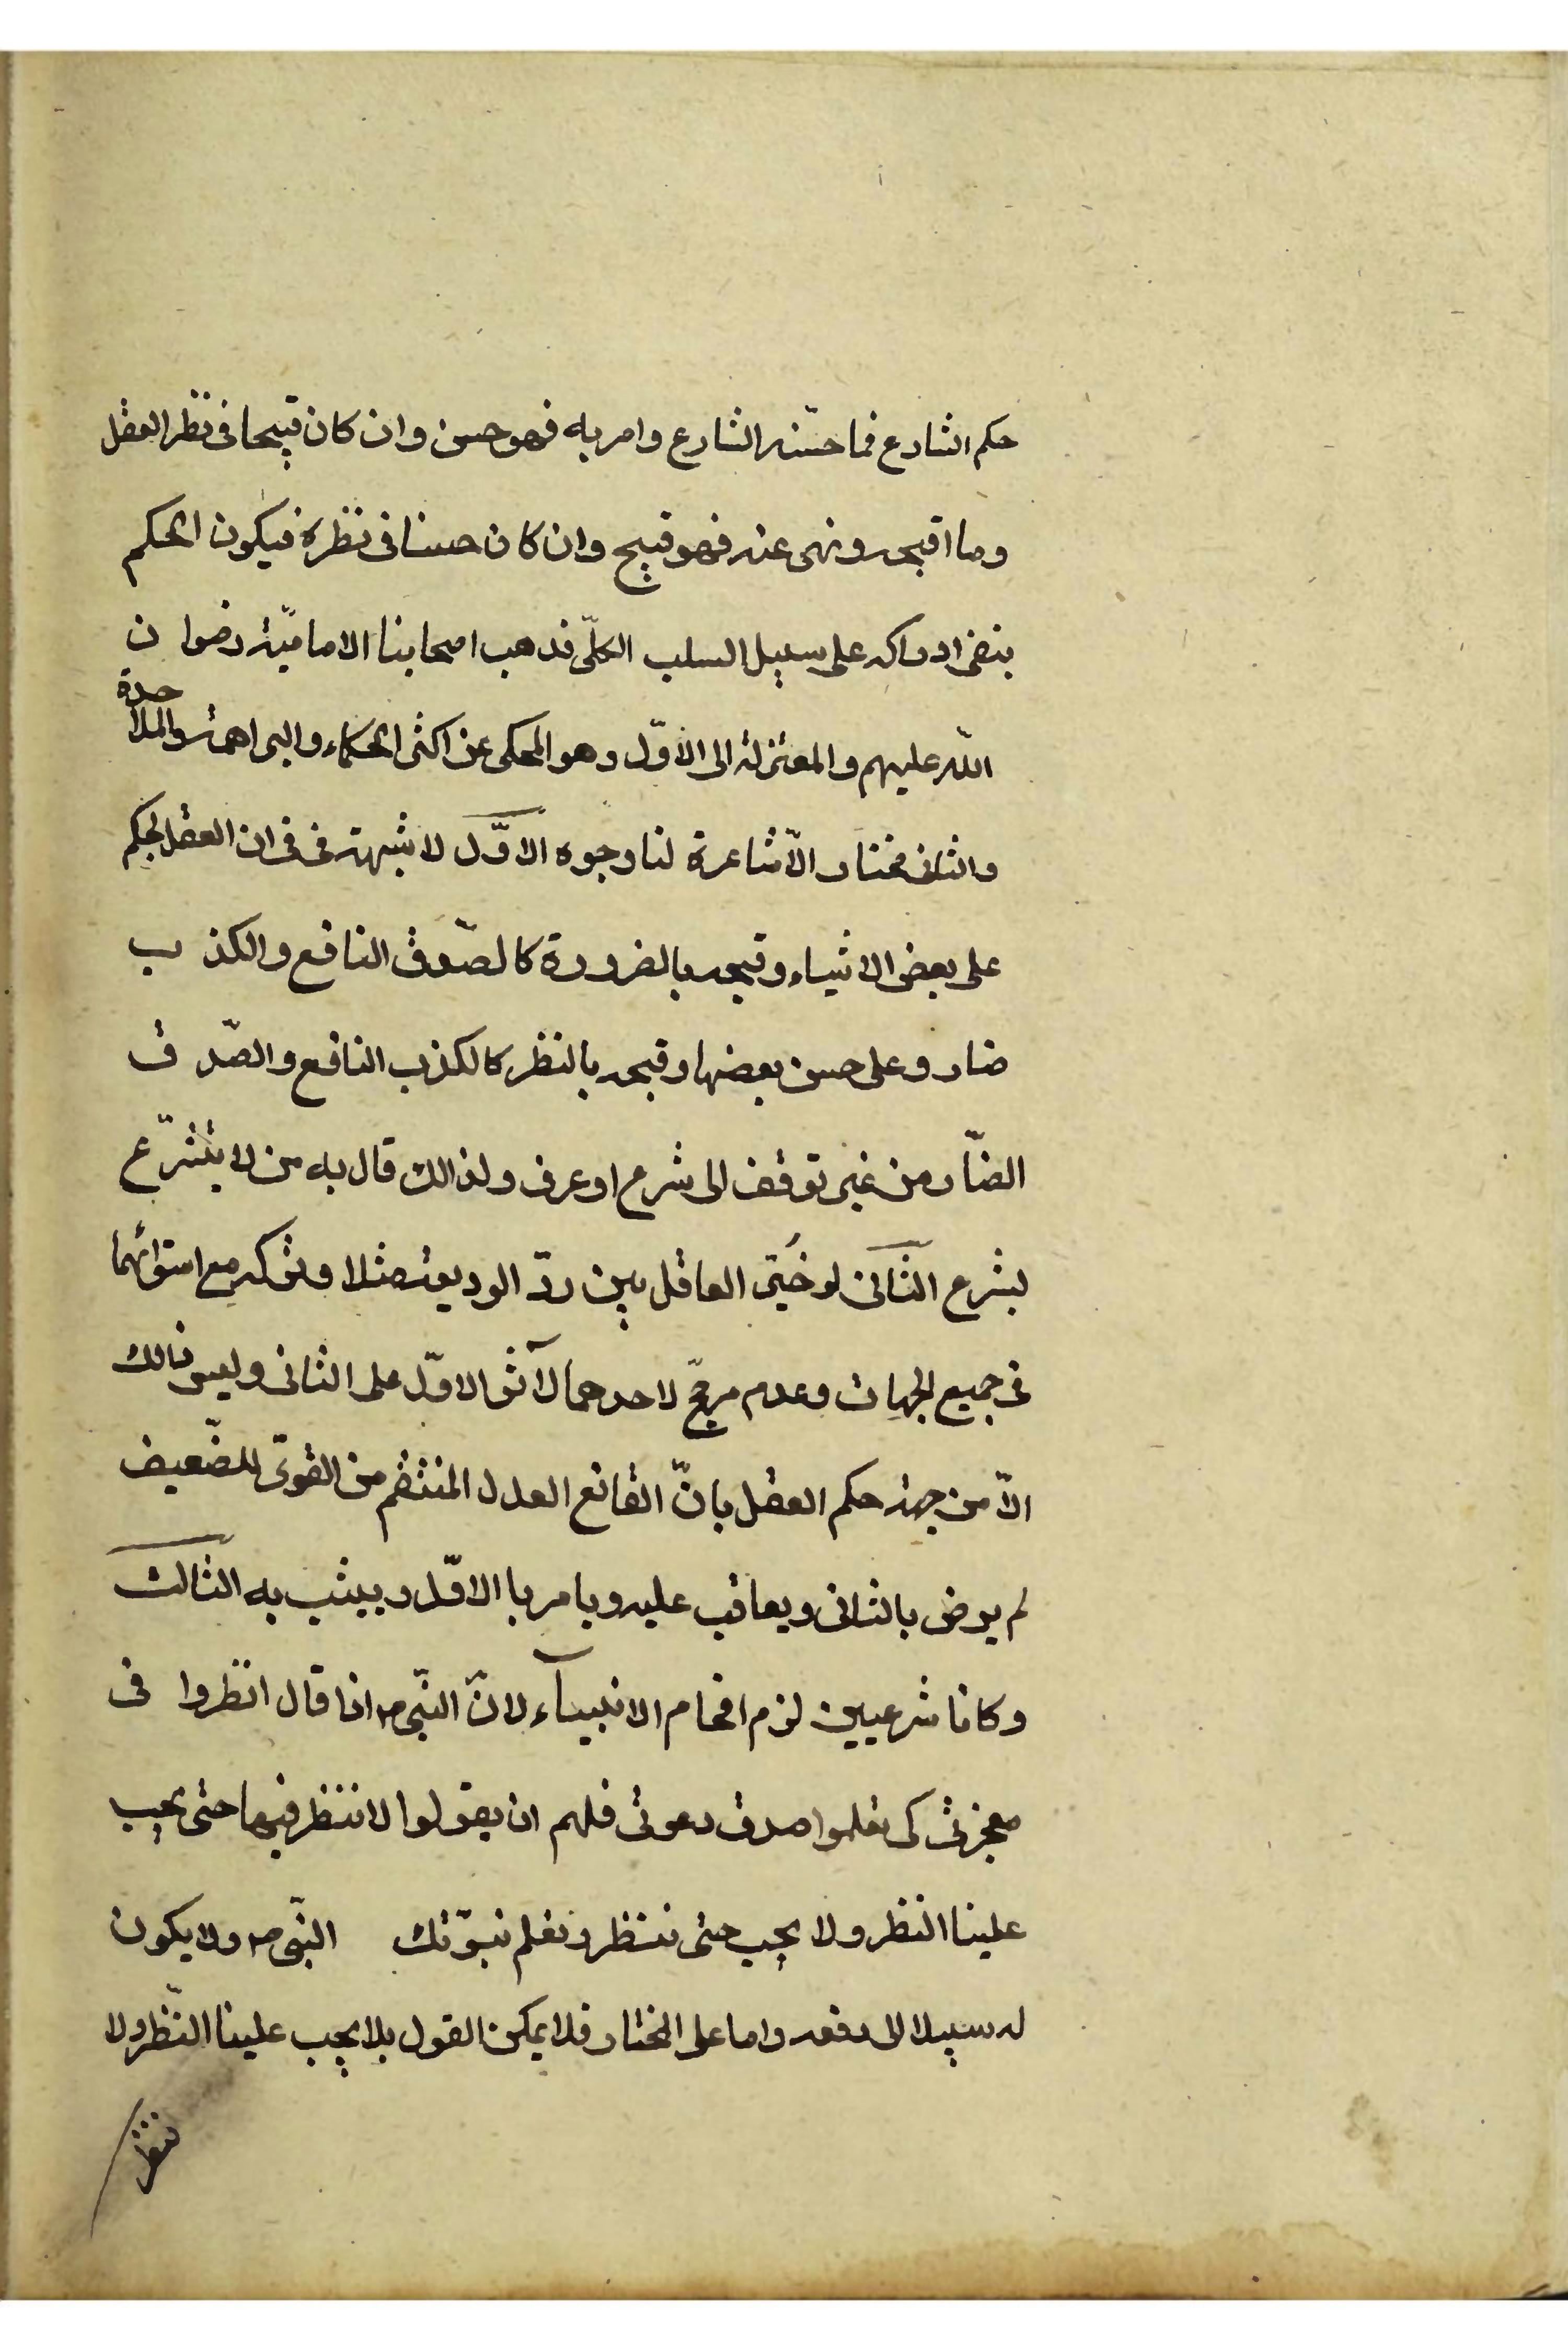 حكم الشارع فما حسّنه الشارع وامر به فهو حسن وان كان قبيحا فى نظر العقل
وما اقبحه ونهى عنه فهو قبيح وان كان حسنا فى نظره فيكون الحكم
بنفى ادراكه على سبيل السلب الكلّى فذهب اصحابنا الاماميّة رضوا ن
الله عليهم والمعتزلة الى الاوّل وهو المحكى عن اكثر الحكماء والبراهمة والملاحدة
والثانى مختار الاشاعرة لنا وجوه الاوّل لا شبهة فى فى ان العقل يحكم
على بعض الاشياء وقبحه بالضرورة كالصّدق النافع والكذ ب
ضار وعلى حسن بعضها وقبحه بالنظر كالكذب النافع والصّد ق
الضّار من غير توقف الى شرع او عرف ولذالك قال به من لا يتشرّع
بشرع الثّانى لو خُيّر العاقل بين ردّ الوديعة مثلا وتركه مع استوائهما
فى جميع الجهات وعدم مرجّح لاحدهما لآثر الاوّل على الثانى وليس ذالك
الّا من جهة حكم العقل بانّ القانع العدل المنتقم من القوىّ للضّعيف
لم يرض بالثانى ويعاقب عليه ويامر با الاوّل ويثيب به الثالث
وكانا شرعيين لزم افحام الانبيآء لانّ النّبى ص اذا قال انظروا فى
معجزتى كى تعلموا صدق دعوتى فلهم ان يقولوا لا ننظر فيها حتى يجب
علينا النظر ولا يجب حتى ننظر ونعلم نبوّتك النّبى ص ولا يكون
له سبيلا الى دفعه واما على المختار فلا يمكن القول بلا يجب علينا النّظر ولا
ننظر